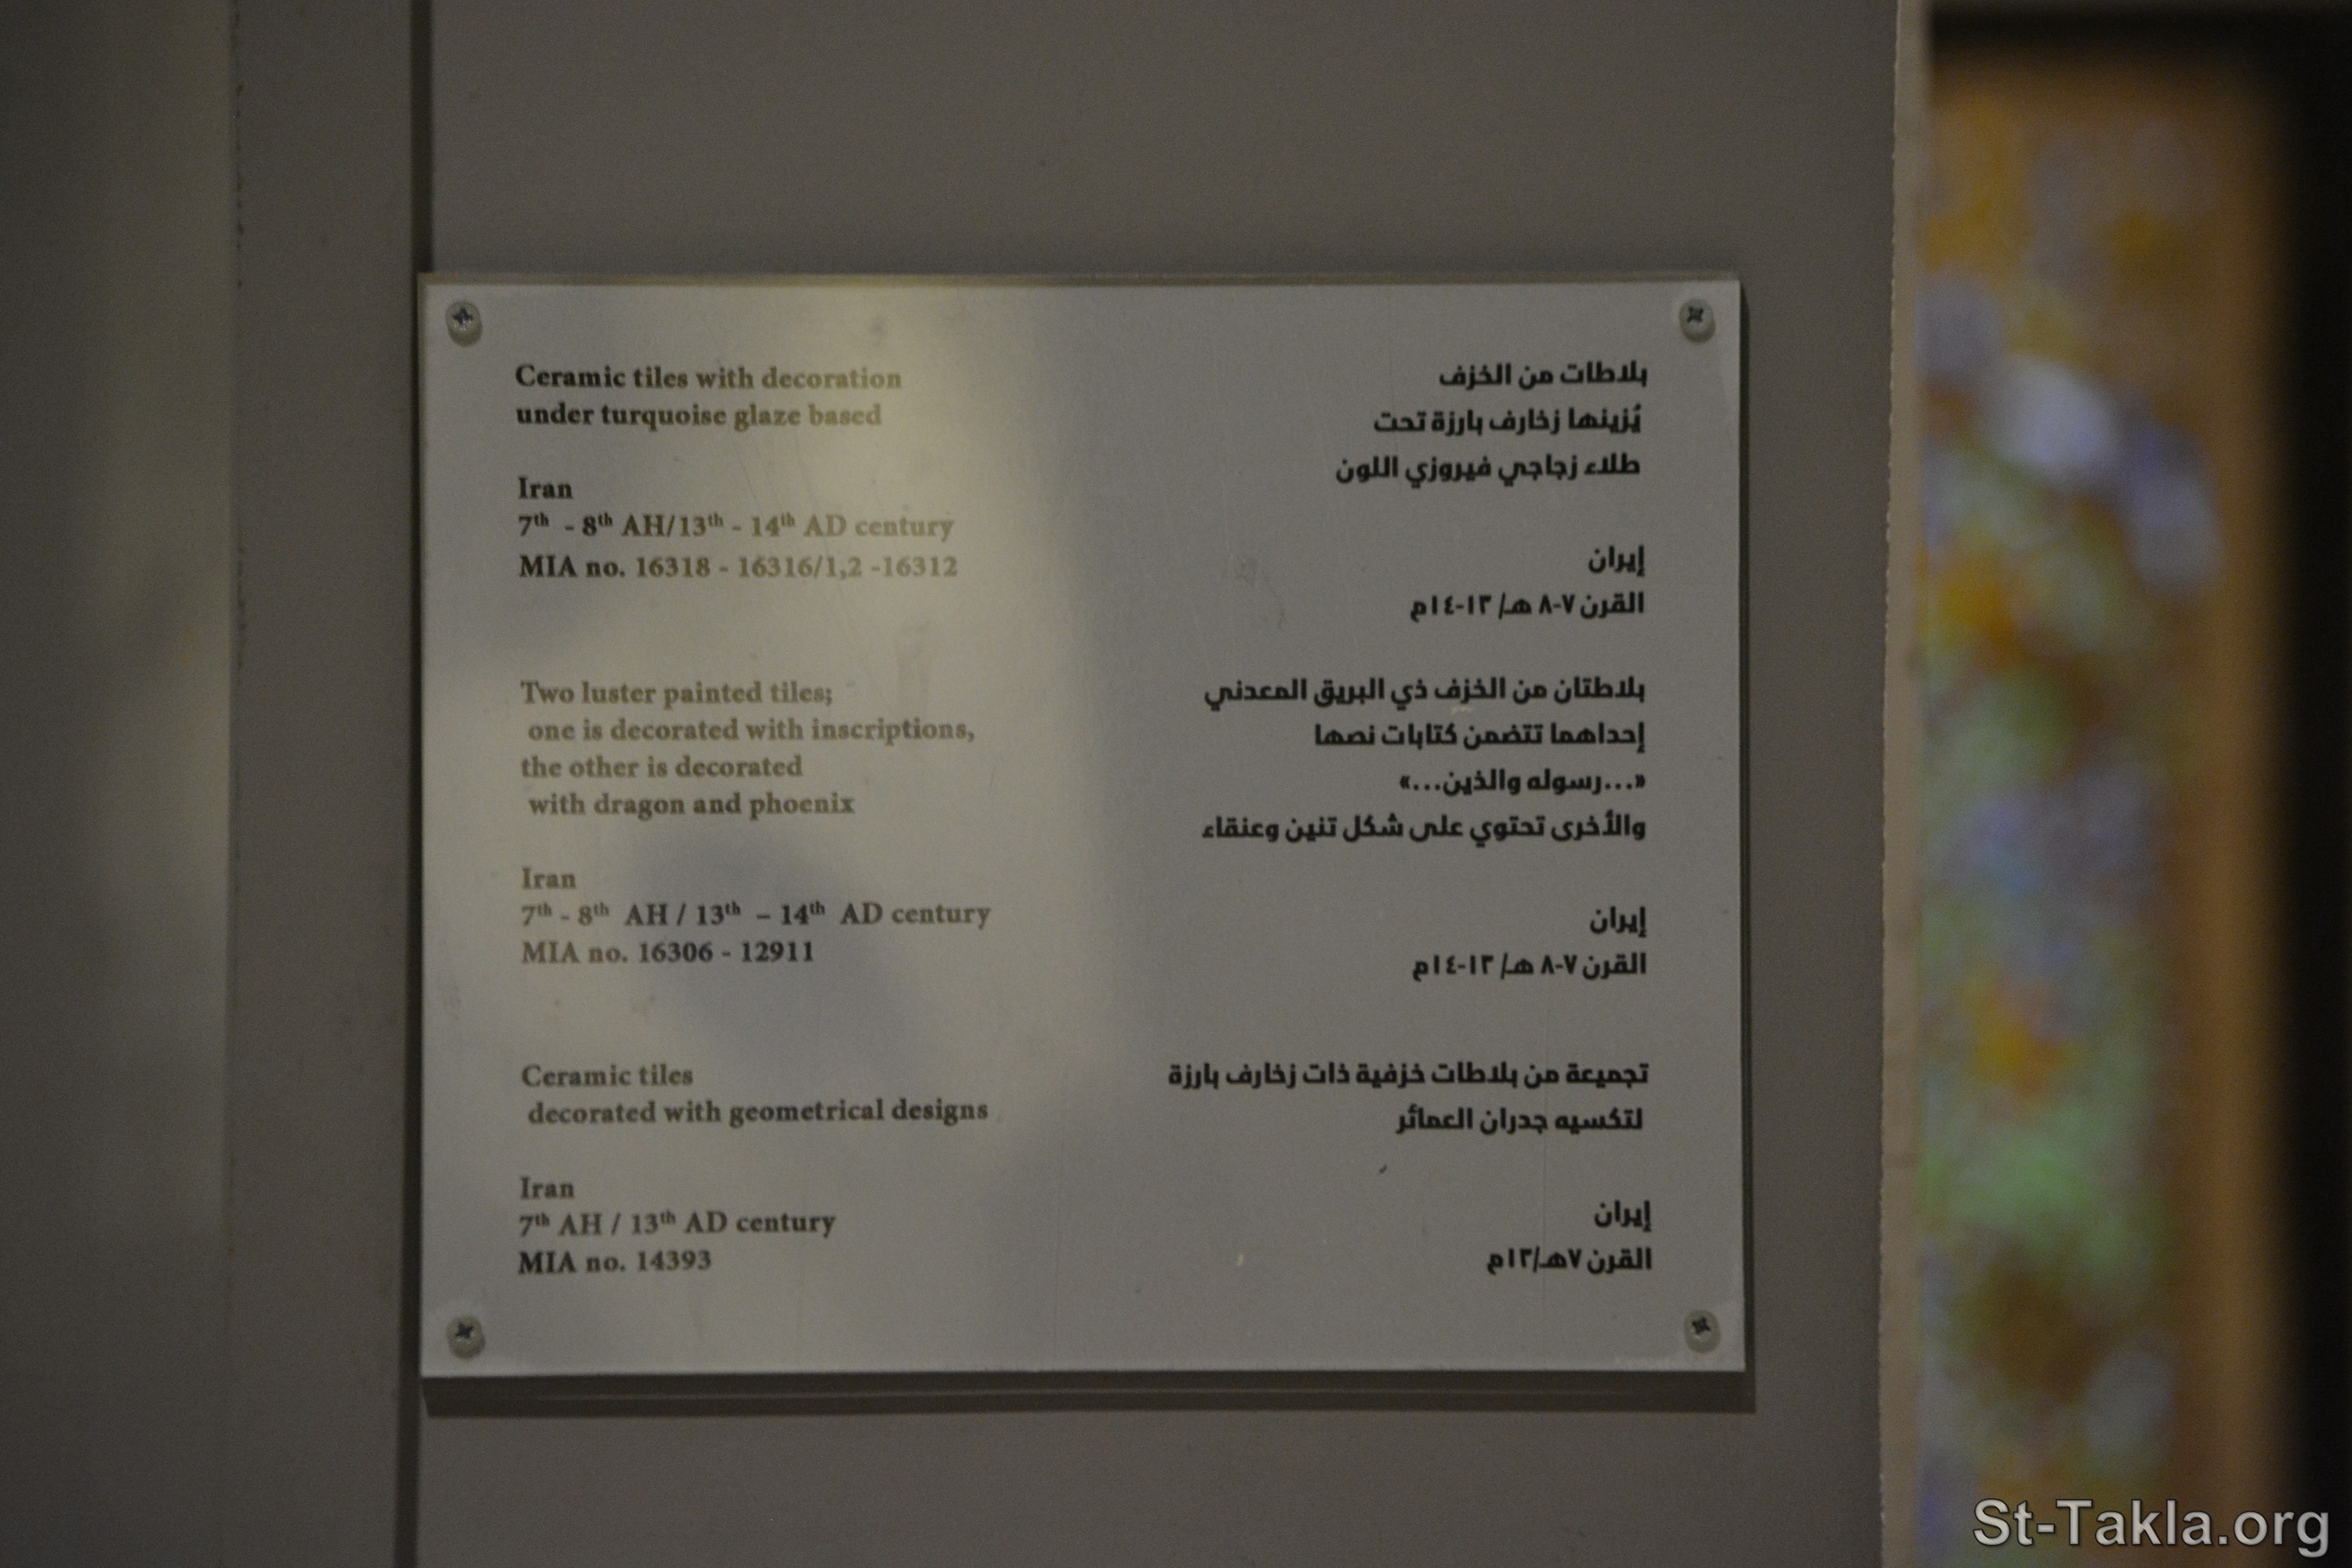 Ceramic tiles with decoration
under turquoise glaze based
Iran
7th - 8th AH/13th - 14th AD century
MIA no. 16318 - 16316/1,2 -16312
Two luster painted tiles;
one is decorated with inscriptions,
the other is decorated
with dragon and phoenix
Iran
7th - 8th AH / 13th – 14th AD century
MIA no. 16306 - 12911
Ceramic tiles
decorated with geometrical designs
Iran
7th AH / 13th AD century
MIA no. 14393
بلاطات من الخزف
يُزينها زخارف بارزة تحت
طلاء زجاجي فيروزي اللون
إيران
القرن ٧-٨ هـ/ ١٣-١٤م
بلاطتان من الخزف ذي البريق المعدني
إحداهما تتضمن كتابات نصها
«...رسوله والذين...»
والأخرى تحتوي على شكل تنين وعنقاء
إيران
القرن ٧-٨ هـ/ ١٣-١٤م
تجميعة من بلاطات خزفية ذات زخارف بارزة
لتكسيه جدران العمائر
إيران
القرن ٧هـ/١٣م
St-Takla.org